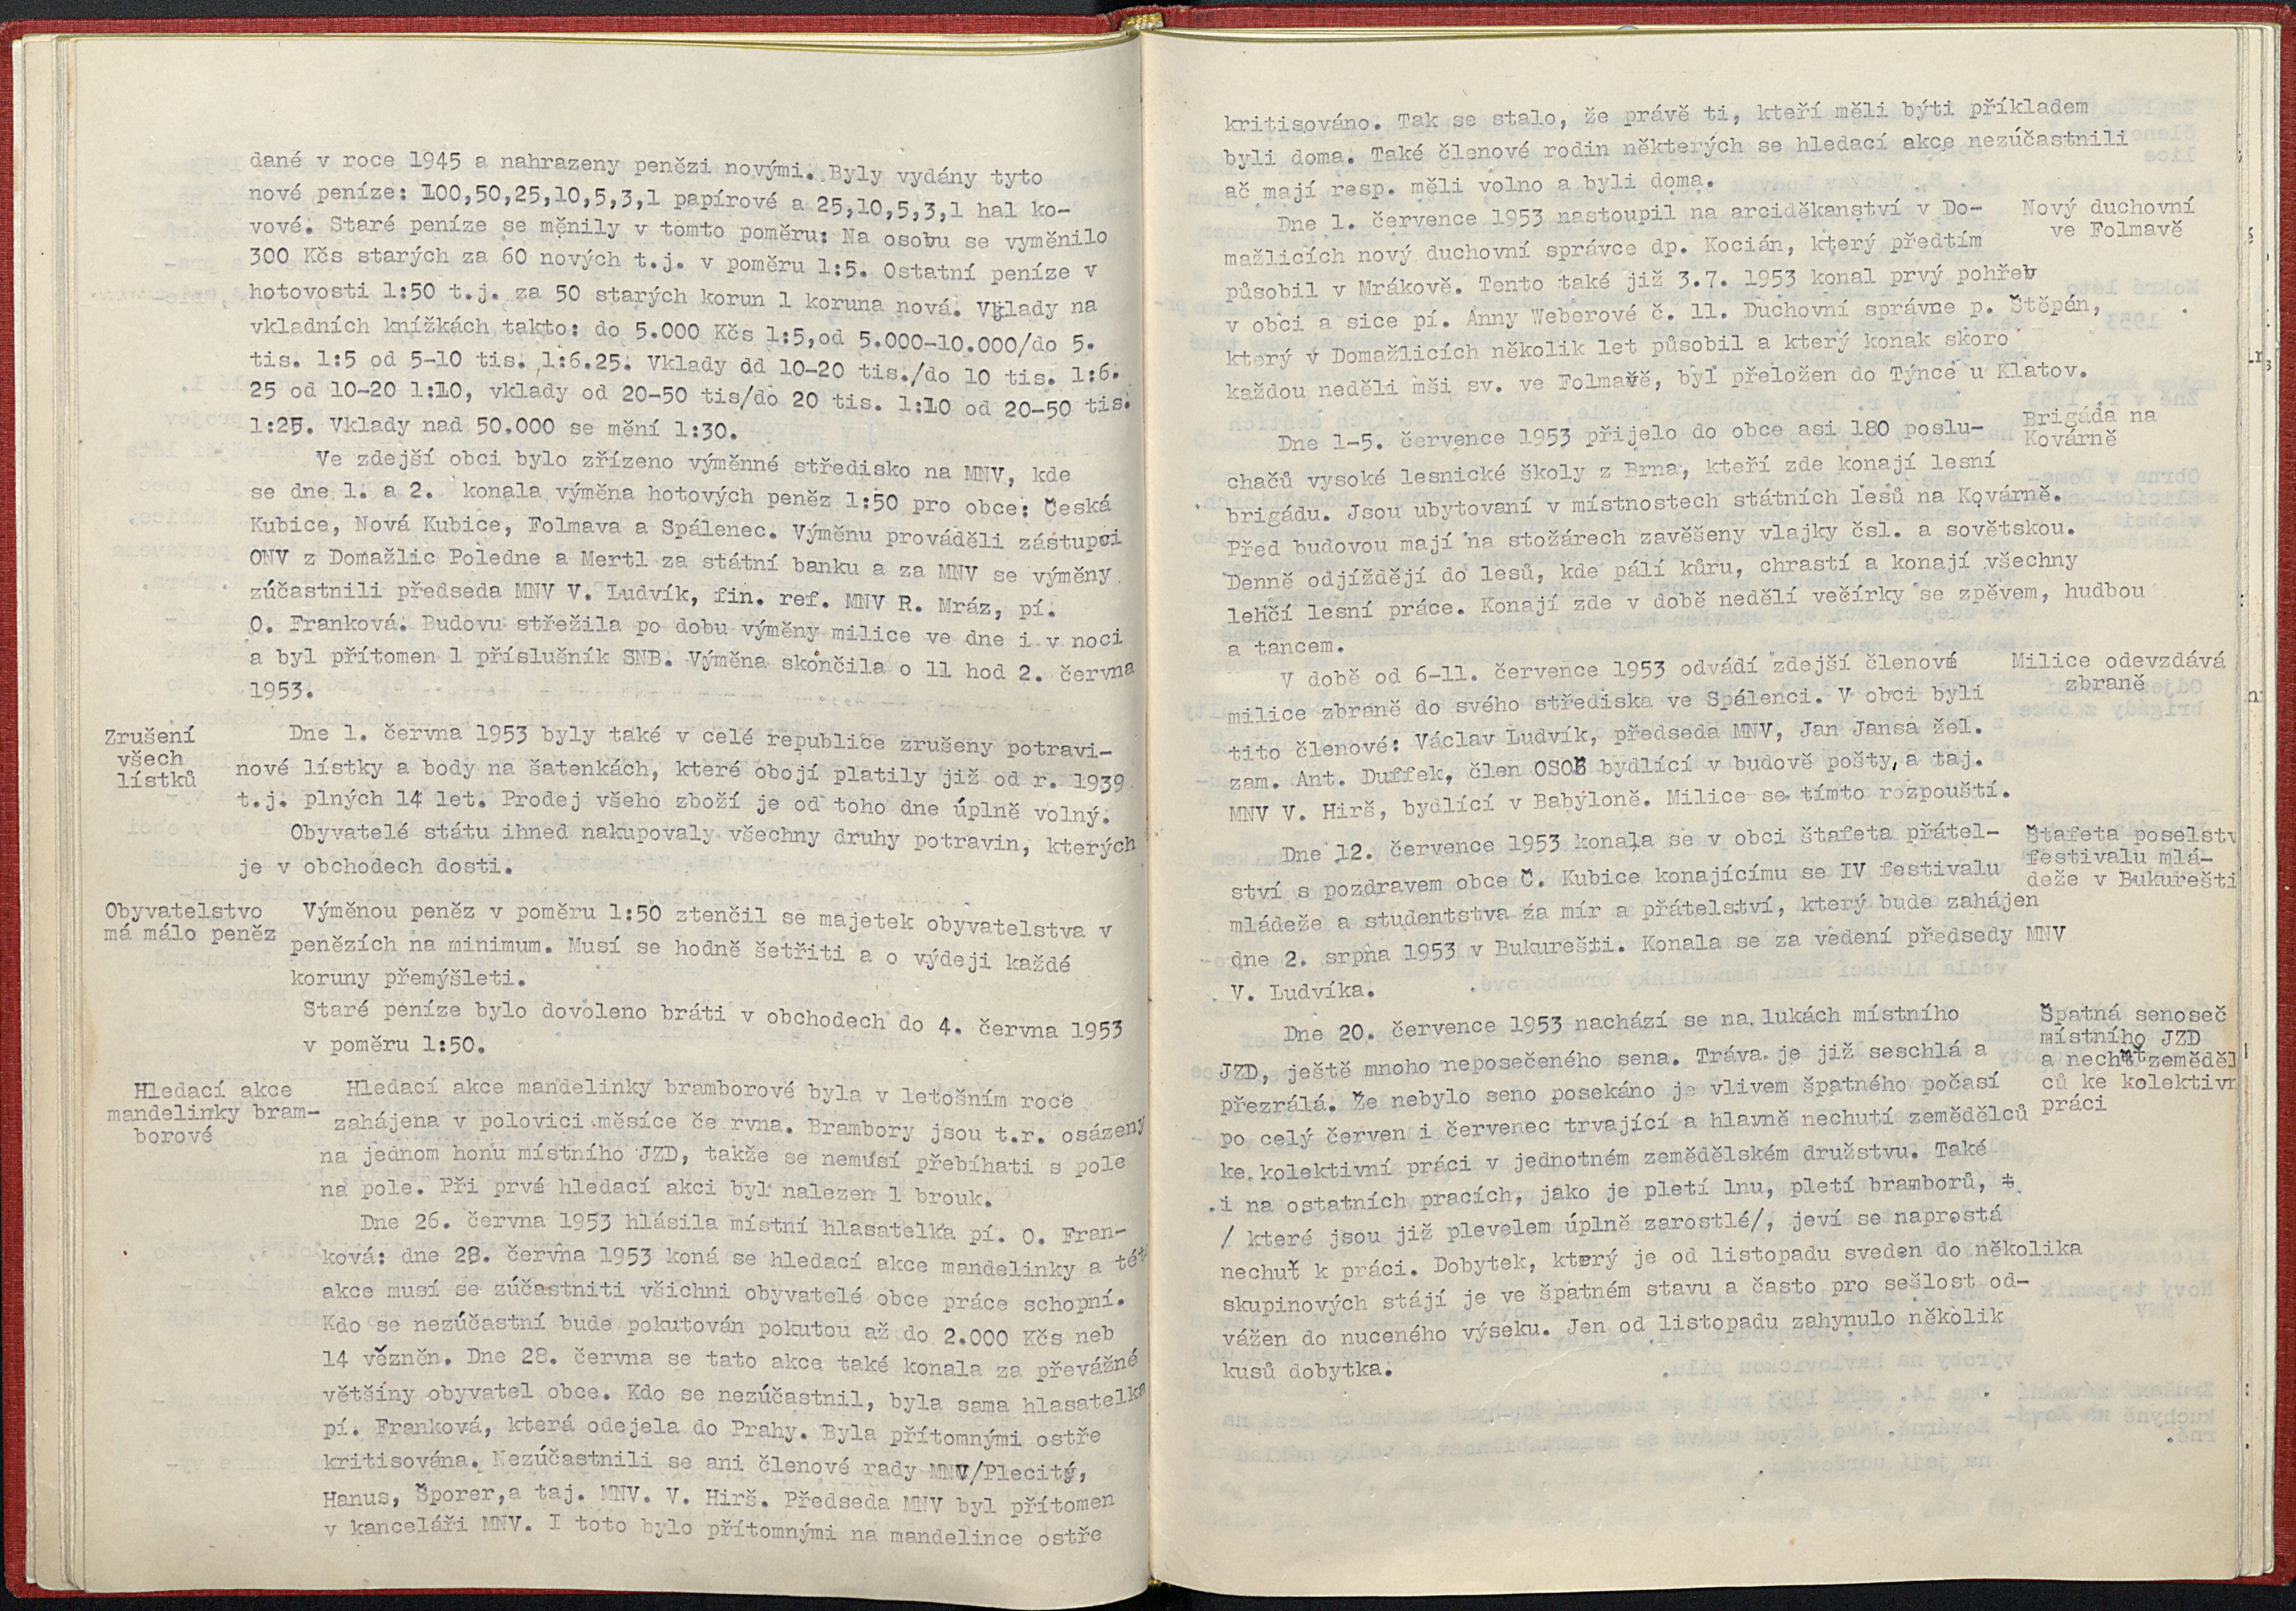 dané v roce 1945 a nahrazeny penězi novými. Byly vydány tyto
nové peníze: 100,50,25,10,5,3,1 papírové a 25,10,5,3,1 hal ko-
vové. Staré peníze se měnily v tomto poměru: Na osobu se vyměnilo
300 Kčs starých za 60 nových t.j. v poměru 1:5. Ostatní peníze v
hotovosti 1:50 t.j. za 50 starých korun 1 koruna nová. Vklady na
vkladních knížkách takto: do 5.000 Kčs 1:5,od 5.000-10.000/do 5.
tis. 1:5 od 5-10 tis. 1:6.25. Vklady od 10-20 tis./do 10 tis. 1:6.
25 od 10-20 1:10, vklady od 20-50 tis/do 20 tis. 1:10 od 20-50 tis.
1:25. Vklady nad 50.000 se mění 1:30.
Ve zdejší obci bylo zřízeno výměnné středisko na MNV, kde
se dne 1. a 2. konala výměna hotových peněz 1:50 pro obce: Česká
Kubice, Nová Kubice, Folmava a Spálenec. Výměnu prováděli zástupci
ONV z Domažlic Poledne a Mertl za státní banku a za MNV se výměny
zúčastnili předseda MNV V. Ludvík, fin. ref. MNV R. Mráz, pí.
O. Franková. Budovu střežila po dobu výměny milice ve dne i v noci
a byl přítomen 1 příslušník SNB. Výměna skončila o 11 hod 2. června
1953.
Zrušení
všech
lístků
Dne 1. června 1953 byly také v celé republice zrušeny potravi-
nové lístky a body na šatenkách, které obojí platily již od r. 1939
t.j. plných 14 let. Prodej všeho zboží je od toho dne úplně volný.
Obyvatelé státu ihned nakupovaly všechny druhy potravin, kterých
je v obchodech dosti.
Obyvatelstvo
má málo peněz
Výměnou peněz v poměru 1:50 ztenčil se majetek obyvatelstva v
penězích na minimum. Musí se hodně šetřiti a o výdeji každé
koruny přemýšleti.
Staré peníze bylo dovoleno bráti v obchodech do 4. června 1953
v poměru 1:50.
Hledací akce
mandelinky bram-
borové
Hledací akce mandelinky bramborové byla v letošním roce
zahájena v polovici měsíce če rvna. Brambory jsou t.r. osázeny
na jednom honu místního JZD, takže se nemusí přebíhati s pole
na pole. Při prvé hledací akci byl nalezen 1 brouk.
Dne 26. června 1953 hlásila místní hlasatelka pí. O. Fran-
ková: dne 28. června 1953 koná se hledací akce mandelinky a této
akce musí se zúčastniti všichni obyvatelé obce práce schopní.
Kdo se nezúčastní bude pokutován pokutou až do 2.000 Kčs neb
14 vězněn. Dne 28. června se tato akce také konala za převážné
většiny obyvatel obce. Kdo se nezúčastnil, byla sama hlasatelka
pí. Franková, která odejela do Prahy. Byla přítomnými ostře
kritisována. Nezúčastnili se ani členové rady MNV/Plecitý,
Hanus, Šporer,a taj. MNV. V. Hirš. Předseda MNV byl přítomen
v kanceláři MNV. I toto bylo přítomnými na mandelince ostře
kritisováno. Tak se stalo, že právě ti, kteří měli býti příkladem
byli doma. Také členové rodin některých se hledací akce nezúčastnili
ač mají resp. měli volno a byli doma.
Nový duchovní
ve Folmavě
Dne 1. července 1953 nastoupil na arciděkanství v Do-
mažlicích nový duchovní správce dp. Kocián, který předtím
působil v Mrákově. Tento také již 3.7. 1953 konal prvý pohřeb
v obci a sice pí. Anny Weberové č. 11. Duchovní správce p. Štěpán,
který v Domažlicích několik let působil a který konak skoro
každou neděli mši sv. ve Folmavě, byl přeložen do Týnce u Klatov.
Brigáda na
Kovárně
Dne 1-5. července 1953 přijelo do obce asi 180 poslu-
chačů vysoké lesnické školy z Brna, kteří zde konají lesní
brigádu. Jsou ubytovaní v místnostech státních lesů na Kovárně.
Před budovou mají na stožárech zavěšeny vlajky čsl. a sovětskou.
Denně odjíždějí do lesů, kde pálí kůru, chrastí a konají všechny
lehčí lesní práce. Konají zde v době nedělí večírky se zpěvem, hudbou
a tancem.
Milice odevzdává
zbraně
V době od 6-11. července 1953 odvádí zdejší členové
milice zbraně do svého střediska ve Spálenci. V obci byli
tito členové: Václav Ludvík, předseda MNV, Jan Jansa žel.
zam. Ant. Duffek, člen OSOB bydlící v budově pošty, a taj.
MNV V. Hirš, bydlící v Babyloně. Milice se tímto rozpouští.
Štafeta poselstv
festivalu mlá-
deže v Bukurešti
Dne 12. července 1953 konala se v obci štafeta přátel-
ství s pozdravem obce Č. Kubice konajícímu se IV festivalu
mládeže a studentstva za mír a přátelství, který bude zahájen
dne 2. srpna 1953 v Bukurešti. Konala se za vedení předsedy MNV
V. Ludvíka.
Špatná senoseč
místního JZD
a nechuť zeměděl
ců ke kolektivn
práci
Dne 20. července 1953 nachází se na lukách místního
JZD, ještě mnoho neposečeného sena. Tráva je již seschlá a
přezrálá. Že nebylo seno posekáno je vlivem špatného počasí
po celý červen i červenec trvající a hlavně nechutí zemědělců
ke kolektivní práci v jednotném zemědělském družstvu. Také
i na ostatních pracích, jako je pletí lnu, pletí bramborů,
/ které jsou již plevelem úplně zarostlé/, jeví se naprostá
nechuť k práci. Dobytek, který je od listopadu sveden do několika
skupinových stájí je ve špatném stavu a často pro sešlost od-
vážen do nuceného výseku. Jen od listopadu zahynulo několik
kusů dobytka.